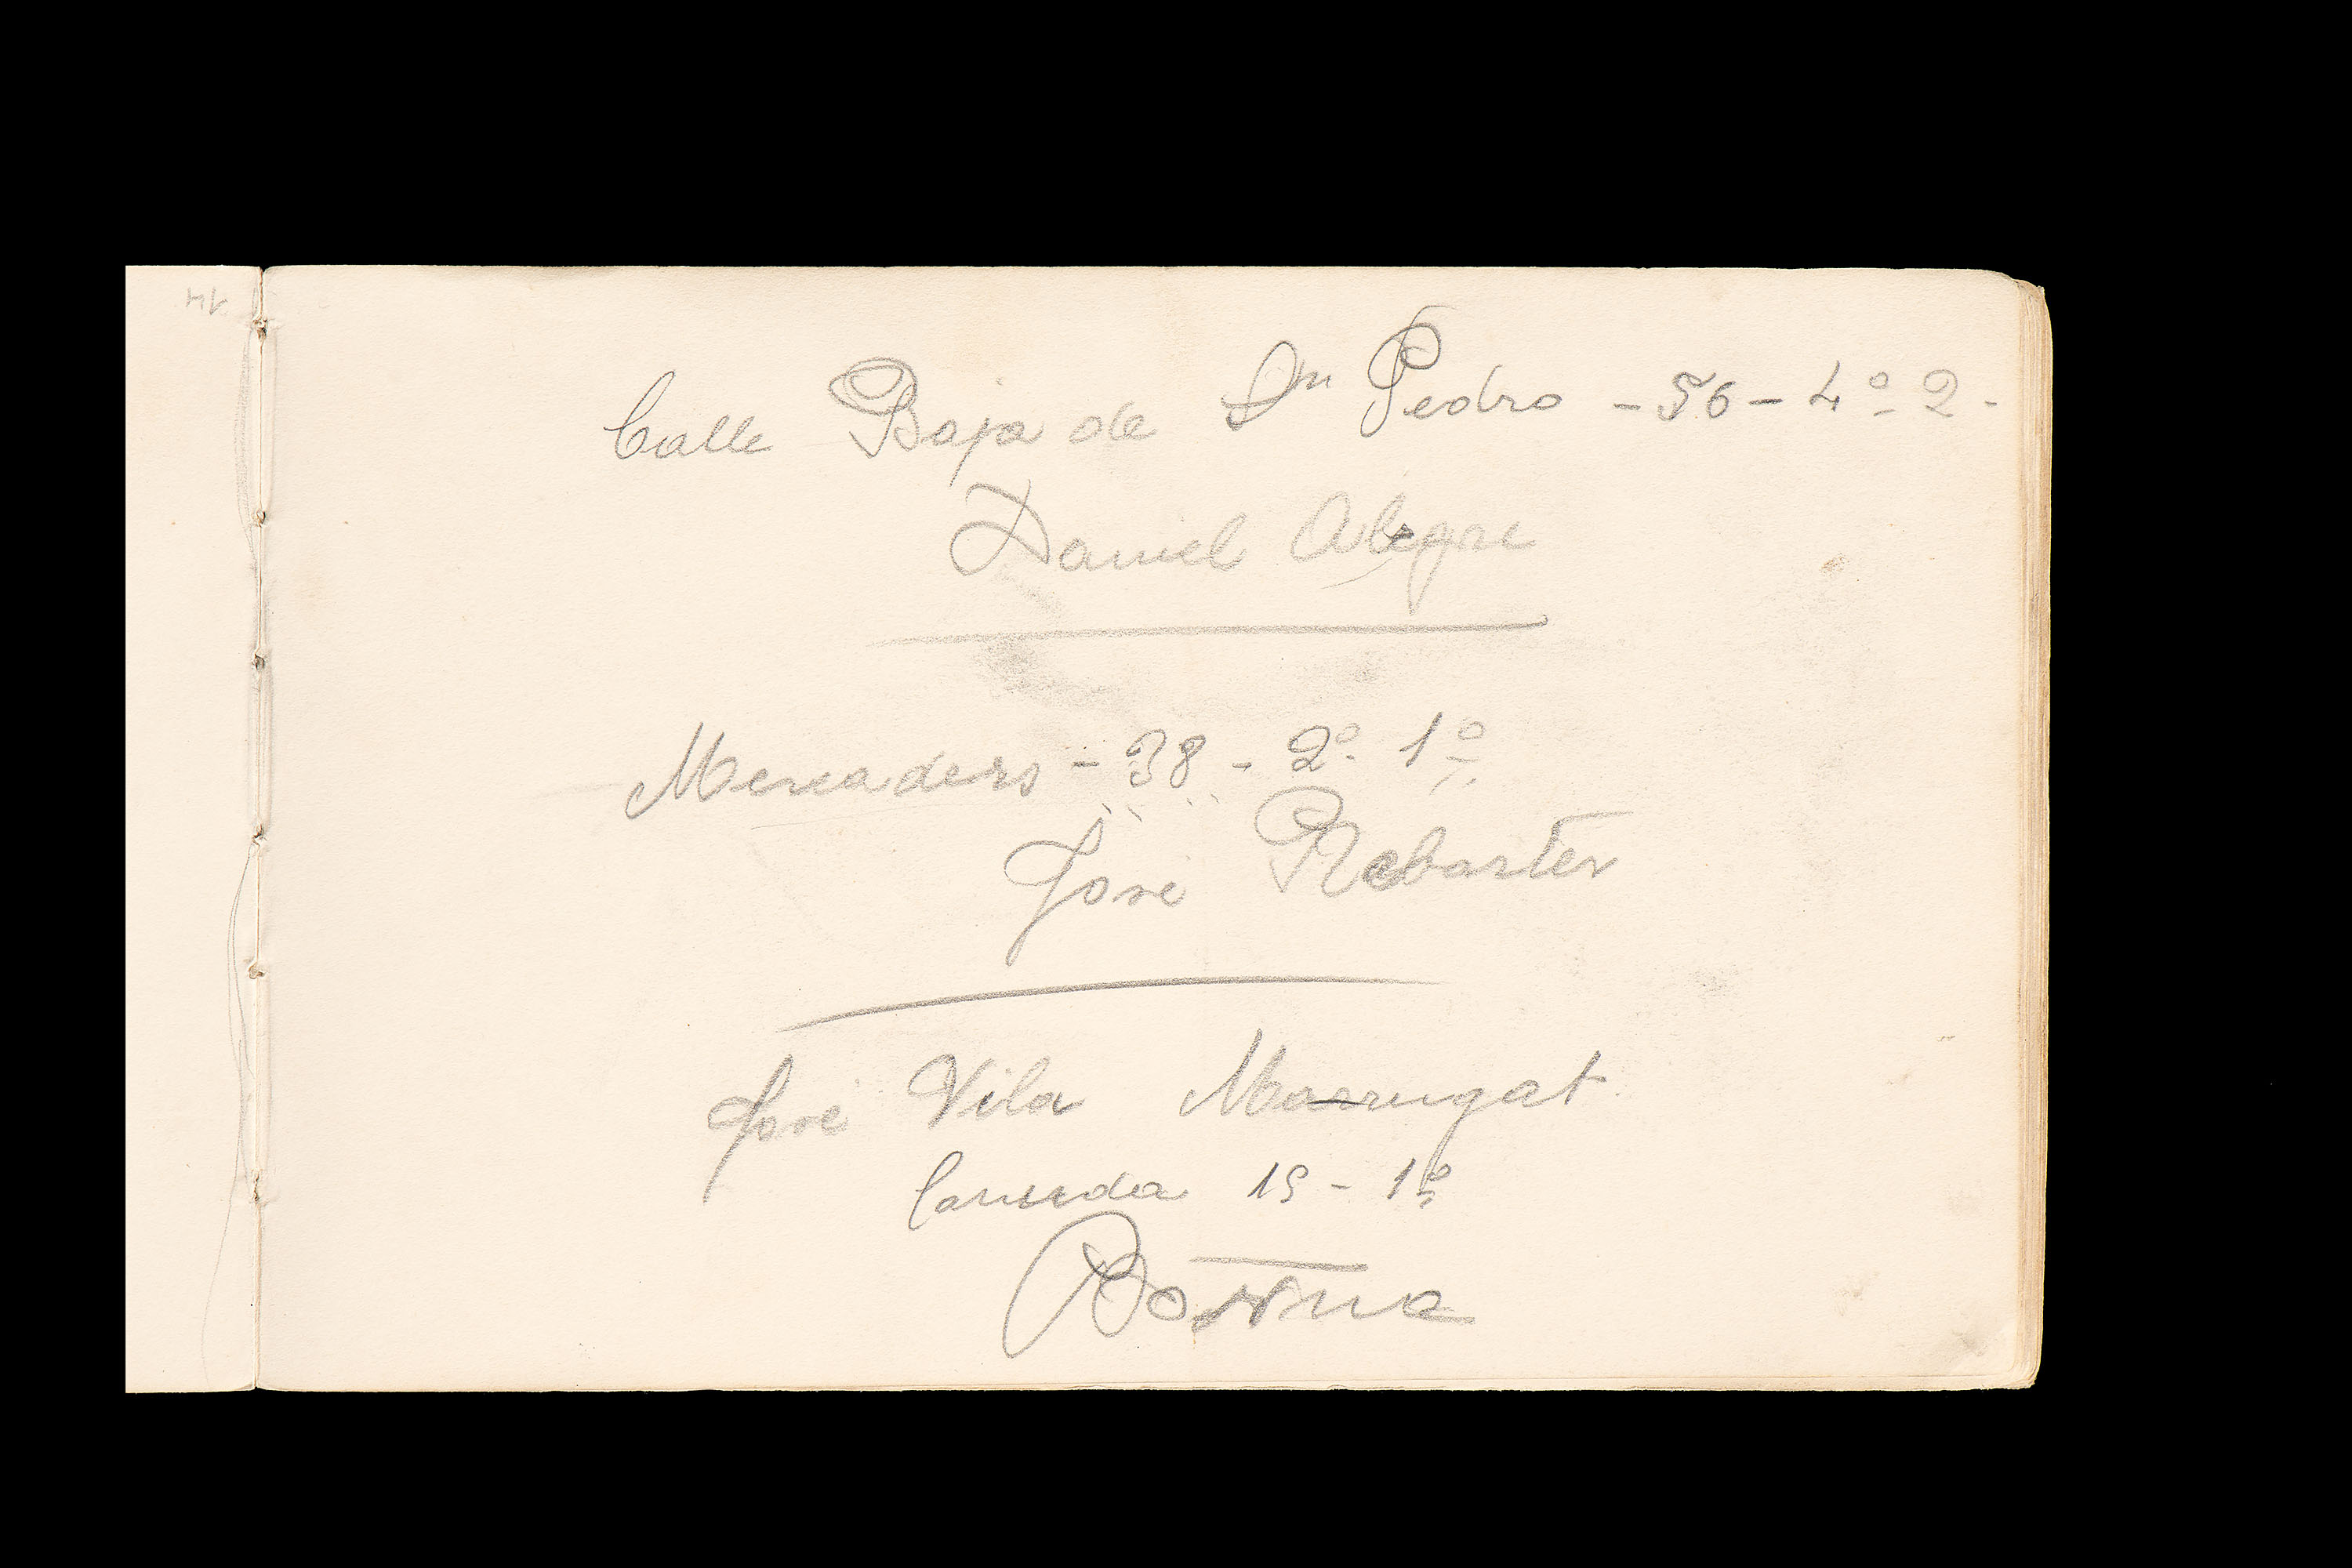 Calle Baja de Sn Pedro - 56 - 4º 2 -
Daniel Alegre
Mercaders - 38 - 2º 1º
José Rabarter
José Vila Marrugat
Canuda 15 - 1º